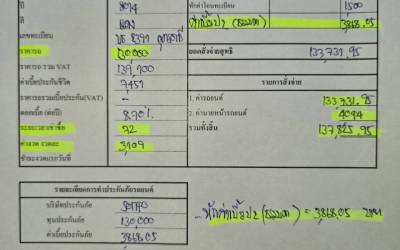 ปี 2014
สี แดง
เลขทะเบียน
ราคารถ 130,000
ราคารถ รวม VAT 139,100
ค่าเบี้ยประกันชีวิต 7,451
ราคารถรวมเบี้ยประกัน(VAT) -
ดอกเบี้ย (ต่อปี) 8.70%
ระยะเวลาเช่าซื้อ 72
ค่างวด งวดละ 3,109
ชำระงวดแรกวันที่
ค่าโอนทะเบียน 1,500
3,868.05
ยอดคงส่งจ่ายสุทธิ 133,731.95
รายการสั่งจ่าย
1. ค่ารถยนต์ 133,731.95
2. ค่านายหน้ารถยนต์ 4094
รวมทั้งสิ้น 137,825.95
รายละเอียดการทำประกันภัยรถยนต์
บริษัทประกันภัย
ทุนประกันภัย 130,000
ค่าเบี้ยประกันภัย 3868.05
= 3,868.05 บาท